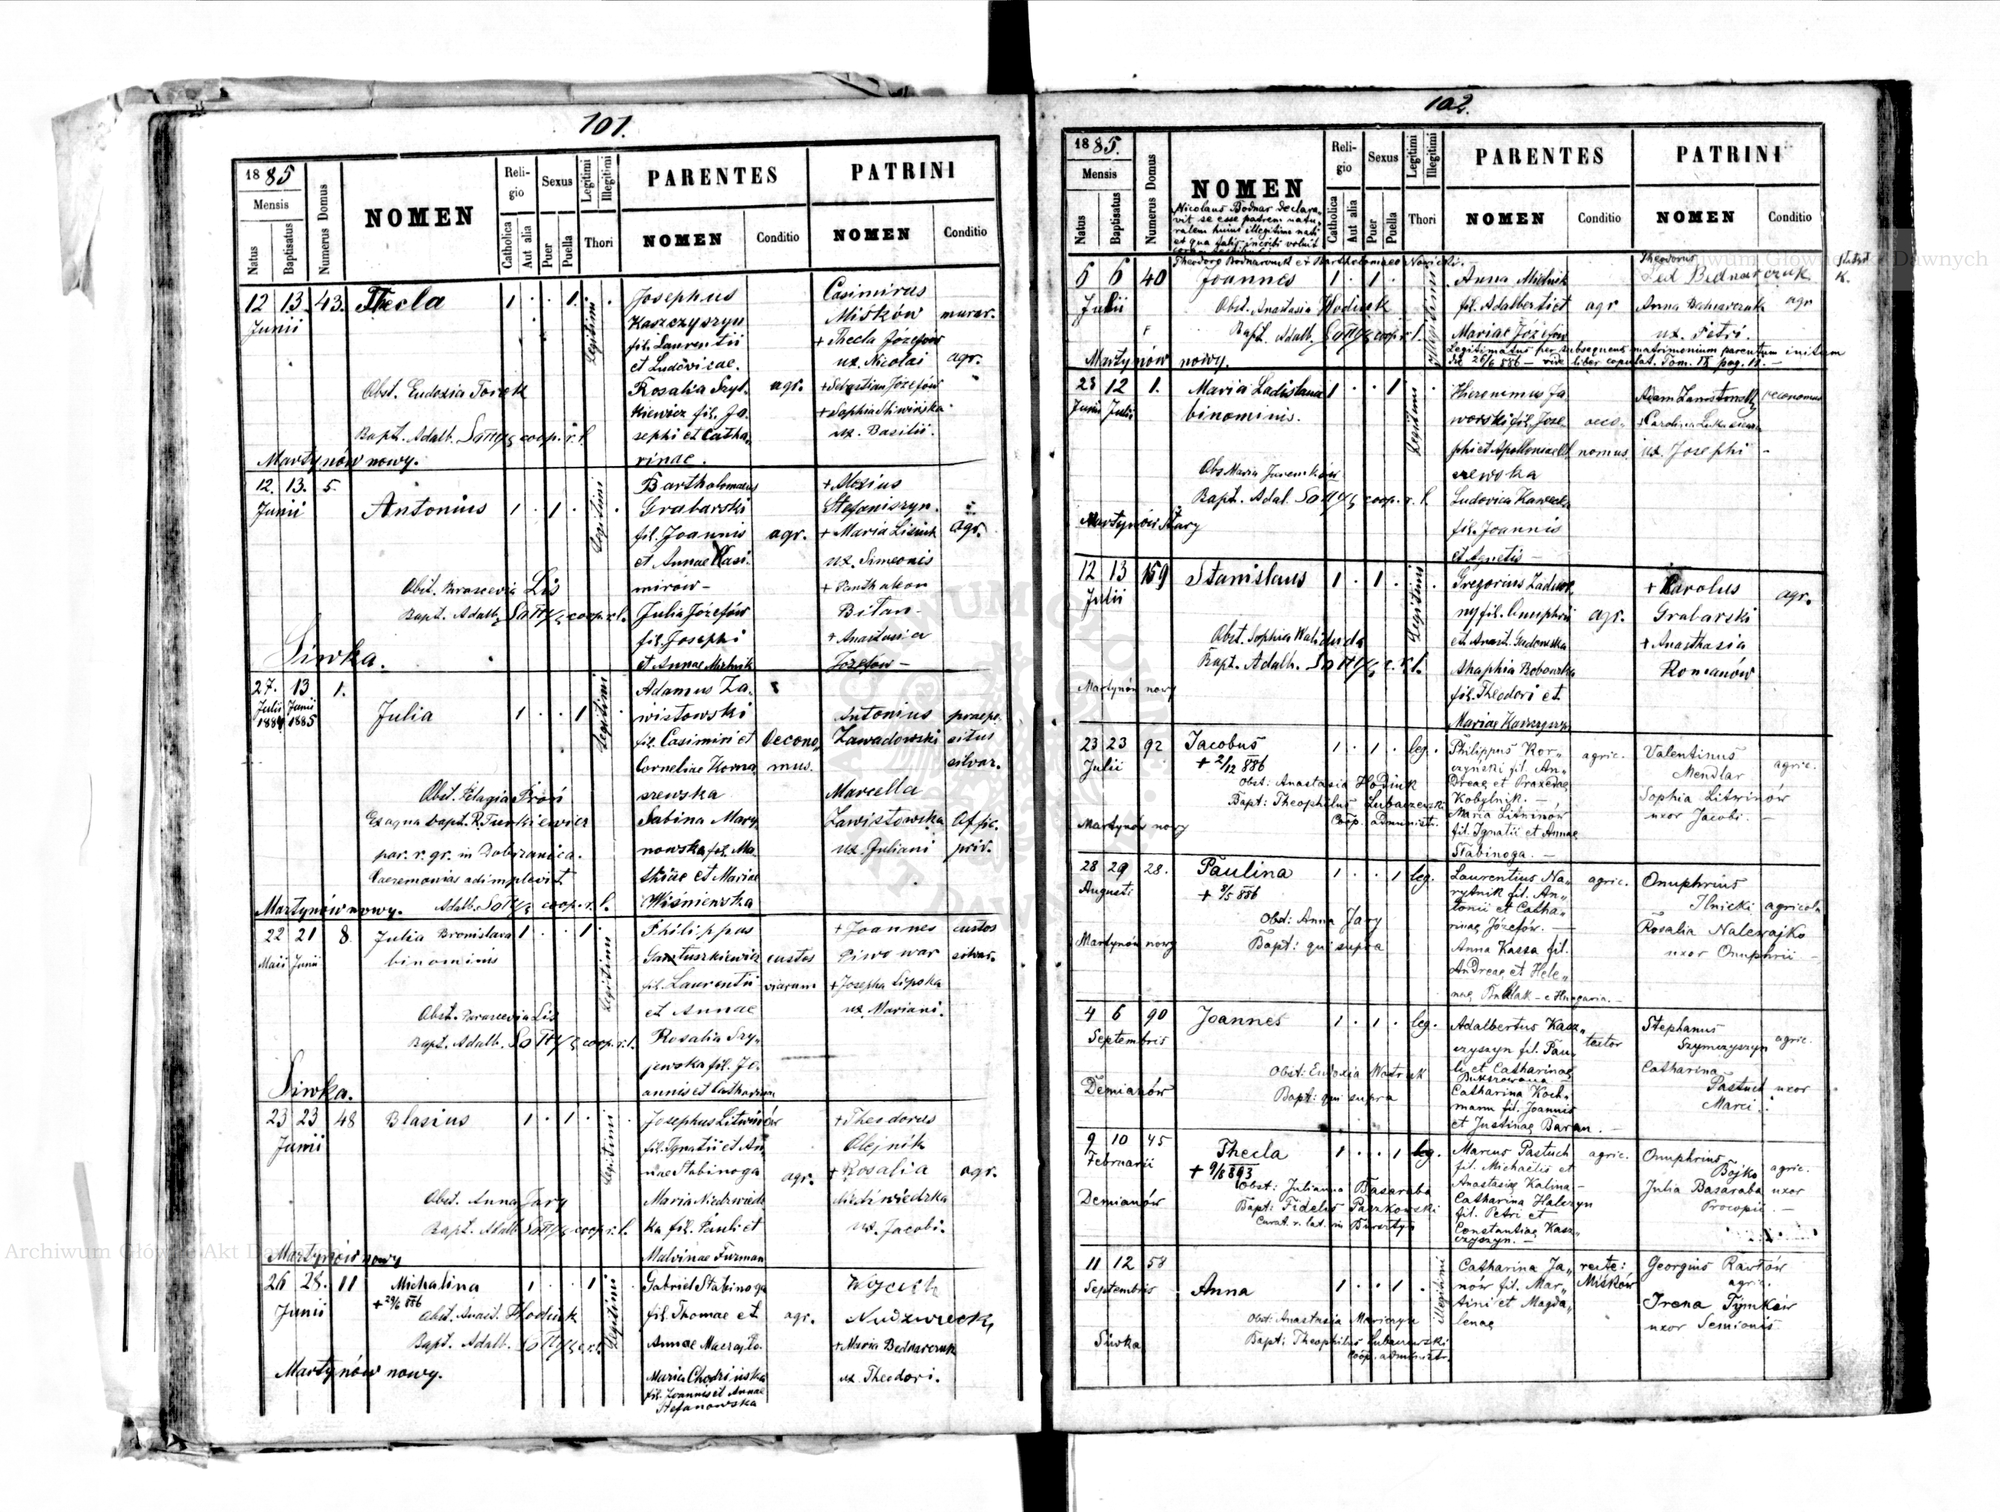 101.
1885
Mensis
Natus
Baptisatus
Numerus Domus
NOMEN
Religio
Catholica
Aut alia
Sexus
Puer
Puella
Legitimi
Illegitimi
Thori
PARENTES
NOMEN
Conditio
PATRINI
NOMEN
Conditio
12 13 43. Thecla 1 . . 1. Legitimi
Junii
Josephus
Kaszczyszyn
fil. Laurentii
et Ludovicae.
Rosalia Szyt-
kiewicz fil. Jo
sephi et Catha,
rinae.
agr.
Casimirus
Misków murar.
+ Thecla Józefów
ux. Nicolai agr.
+ Sebastian Józefów
+ Sophia Śliwińska
ux. Basilii.
Obst. Eudoxia Torek
Bapt. Adalb. coop. r. l.
Martynów nowy.
12. 13. 5.
Junii
Antonius 1 . 1 . Legitimi
Bartholomaeus
Grabarski
fil. Joannis agr.
et Annae Kasi-
mirów-
Julia Józefów
fil. Josephi
et Annae Mielnik
+ Alexius
Stefaniszyn.
+ Maria Lisiuk agr.
ux. Simeonis
+ Panthaleon
Bilan-
+ Anastasia
Józefów-
Obst. Parascevia Lis
Bapt. Adalb. coop. r. l.
Siwka.
27. 13 1.
Julii Junii
1884 1885
Julia 1 . . 1 Legitimi
Adamus Za-
wistowski
fil. Casimiri et Oecono,
Corneliae Korna mus.
szewska
Sabina Mary
nowska fil. Ma
thiae et Mariae
Wiśniewska
Antonius praepo
Zawadowski situs
silvar.
Marcella
Zawistowska offic.
ux. Juliani priv.
Obst. Pelagia Proń
Ex aqua bapt. R. Turkiewicz
par. r. gr. in Dobrzanica.
Caeremonias adimplevit
Adalb. coop. r. l.
Martynów nowy.
22 21 8 Julia Bronislava 1 . . 1 Legitimi
Maii Junii binominis
Philippus
Gantuszkiewicz custos
fil. Laurentii viarum
et Annae
Rosalia Szy-
jewska fil. Jo
annis et Catharinae
+ Joannes custos
Piwowar silvar.
+ Josepha Lipska
ux. Mariani.
Obst. Parascevia Lis
Bapt. Adalb. coop. r. l.
Siwka.
23 23 48 Blasius 1 . 1 . Legitimi
Junii
Josephus Litwinów
fil. Ignatii et An
nae Stabinoga agr.
Maria Niedzwiedz
ka fil. Pauli et
Malvinae Furman
+ Theodorus
Olejnik
+ Rosalia agr.
Niedzwiedzka
ux. Jacobi.
Obst. Anna Jary
Bapt. Adalb. coop. r. l.
Martynów nowy
26 28. 11 Michalina 1 . . 1 Legitimi
+ 29/6 886
Junii
Gabriel Stabinoga
fil. Thomae et agr.
Annae
Maria Chodzińska
fil. Joannis et Annae
Stefanowska
Wojciech
+ Maria Bednarczuk
ux. Theodori.
Obst. Anast. Hodiuk
Bapt. Adalb. c. r. l.
Martynów nowy.
102.
1885.
Mensis
Natus
Baptisatus
Numerus Domus
NOMEN
Religio
Catholica
Aut alia
Sexus
Puer
Puella
Legitimi
Illegitimi
Thori
PARENTES
NOMEN
Conditio
PATRINI
NOMEN
Conditio
Nicolaus Bodnar declara-
vit se esse patrem natu-
ralem huius illegitimi nati
et qua talis inscribi voluit
Theodoro Bednarczuk et Bartholomaeo Nowicki.-
6 6 40 Joannes 1 . 1 . Illegitimi
Julii
Anna Mielnik
fil. Adalberti et agr
Mariae Józefów
Theodorus
Led Bednarczuk
Anna Bednarczuk agr
ux. Petri.
Obst. Anastasia Hodiuk
Bapt. Adalb. coop. r. l.
Legitimatus per subsequens matrimonium parentum initum
die 26/6 886 - vide liber copulat. Tom. IX pag. 17.-
Martynów nowy.
23 12 1. Maria Ladislava 1 . . 1 Legitimi
Junii Julii binominis.
Hieronimus Ja
worski fil. Jose oeco,
phi et Apolloniae nomus
szewska
Ludovica
fil. Joannis
et Agnetis-
Adam oeconomus
+ Carolina
ux. Josephi -
Obs. Maria Juremków
Bapt. Adal. coop. r. l.
Martynów Stary
12 13 159 Stanislaus 1 . 1 . Legitimi
Julii
Gregorius Zadwor
ny fil. Onuphrii agr.
et Anast. Gudowska
Ahaphia Bobowska
fil. Theodori et
Mariae Kaszczyszyn
+ Karolus agr.
Grabarski
+ Anasthasia
Romanów
Obst. Sophia
Bapt. Adalb. c. r. l.
Martynów nowy
23 23 92 Jacobus 1 . 1 . leg.
Julii + 2/12 886
Philippus Kor- agric.
czyński fil. An-
dreae et Praxedae
Kobylnik.-
Maria Litwinów
fil. Ignatii et Annae
Stabinoga.-
Valentinus agric.
Mendlar
Sophia Litwinów
uxor Jacobi.-
Obst: Anastasia Hodiuk
Bapt: Theophilus Lubaczewski
Coop. administr.
Martynów nowy
28 29 28. Paulina 1 . . 1 leg.
Augusti + 8/5 886
Laurentius Na- agric.
rytnik fil. An-
tonii et Catha-
rinae Józefów.-
Anna Kassa fil.
Andreae et Hele-
nae - e Hungaria.
Onuphrius
Ilnicki agricola
Rosalia Nalewajko
uxor Onuphrii-
Obst: Anna Jary
Bapt: qui supra
Martynów nowy
4 6 90 Joannes 1 . 1 . leg.
Septembris
Adalbertus Kasz-
czyszyn fil. Pau- textor
li et Catharinae
Catharina Koch-
mann fil. Joannis
et Justinae Baran.-
Stephanus
Szymczyszyn agric.
Catharina
Pastuch uxor
Marci.
Obst: Eudoxia
Bapt: qui supra
Demianów
9 10 45 Thecla 1 . . 1 leg.
Februarii + 9/1 893
Marcus Pastuch agric.
fil. Michaëlis et
Anastasiae Kalina-
Catharina Haleszyn
fil. Petri et
Constantiae Kasz-
czyszyn.-
Onuphrius
Bojko agric.
Julia Basaraba uxor
Procopii.-
Obst: Julianna Basaraba
Bapt: Fidelis Paszkowski
Curat. r. lat. in Bursztyn
Demianów
11 12 58
Septembris Anna 1 . . 1 . Illegitimi
Catharina Ja- recte:
nów fil. Mar- Misków
tini et Magda-
lenae
Georgius Rawłów
agric.
Irena Tymków
uxor Semionis
Obst: Anastasia
Bapt: Theophilus Lubaczewski
Coop. administr.
Siwka
Archiwum Główne Akt Dawnych